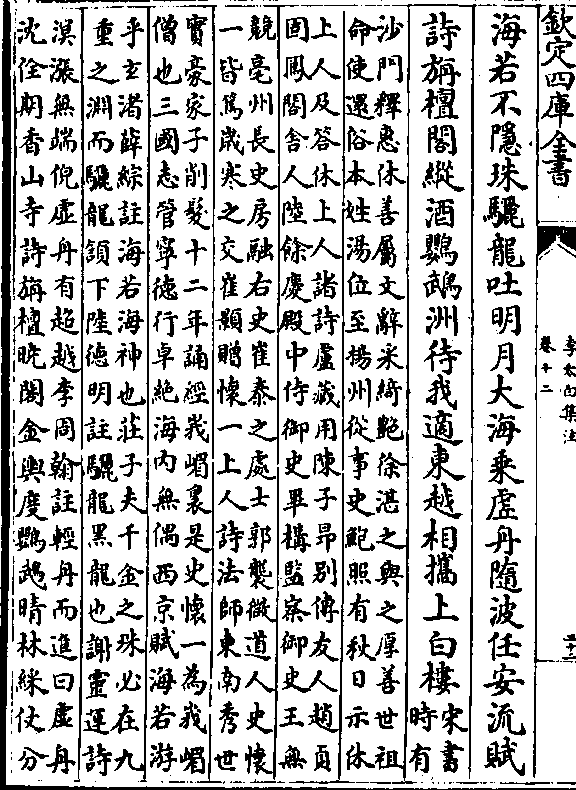 欽定四庫全書
李太白集注
卷十二
海若不隱珠驪龍吐明月大海乗虛舟隨波任安流賦
詩旃檀閣縱酒鸚鵡洲待我適東越相攜上白樓
宋書
時有
沙門釋惠休善屬文辭采綺艶徐湛之與之厚善世祖
命使還俗本姓湯位至揚州從事史鮑照有秋日示休
上人及答休上人諸詩盧藏用陳子昂別傳友人趙貞
固鳳閣舍人陸餘慶殿中侍御史畢構監察御史王無
競亳州長史房融右史崔泰之處士郭襲微道人史懷
一皆篤歲寒之交崔顥贈懷一上人詩法師東南秀世
實豪家子削髮十二年誦經峩嵋裏是史懷一為峩嵋
僧也三國志管寧德行卓絶海内無偶西京賦海若游
乎玄渚薛綜註海若海神也莊子夫千金之珠必在九
重之淵而驪龍頷下陸德明註驪龍黑龍也謝靈運詩
溟漲無端倪虛舟有超越李周翰註輕舟而進曰虛舟
沈佺期香山寺詩旃檀曉閣金輿度鸚鵡晴林綵仗分